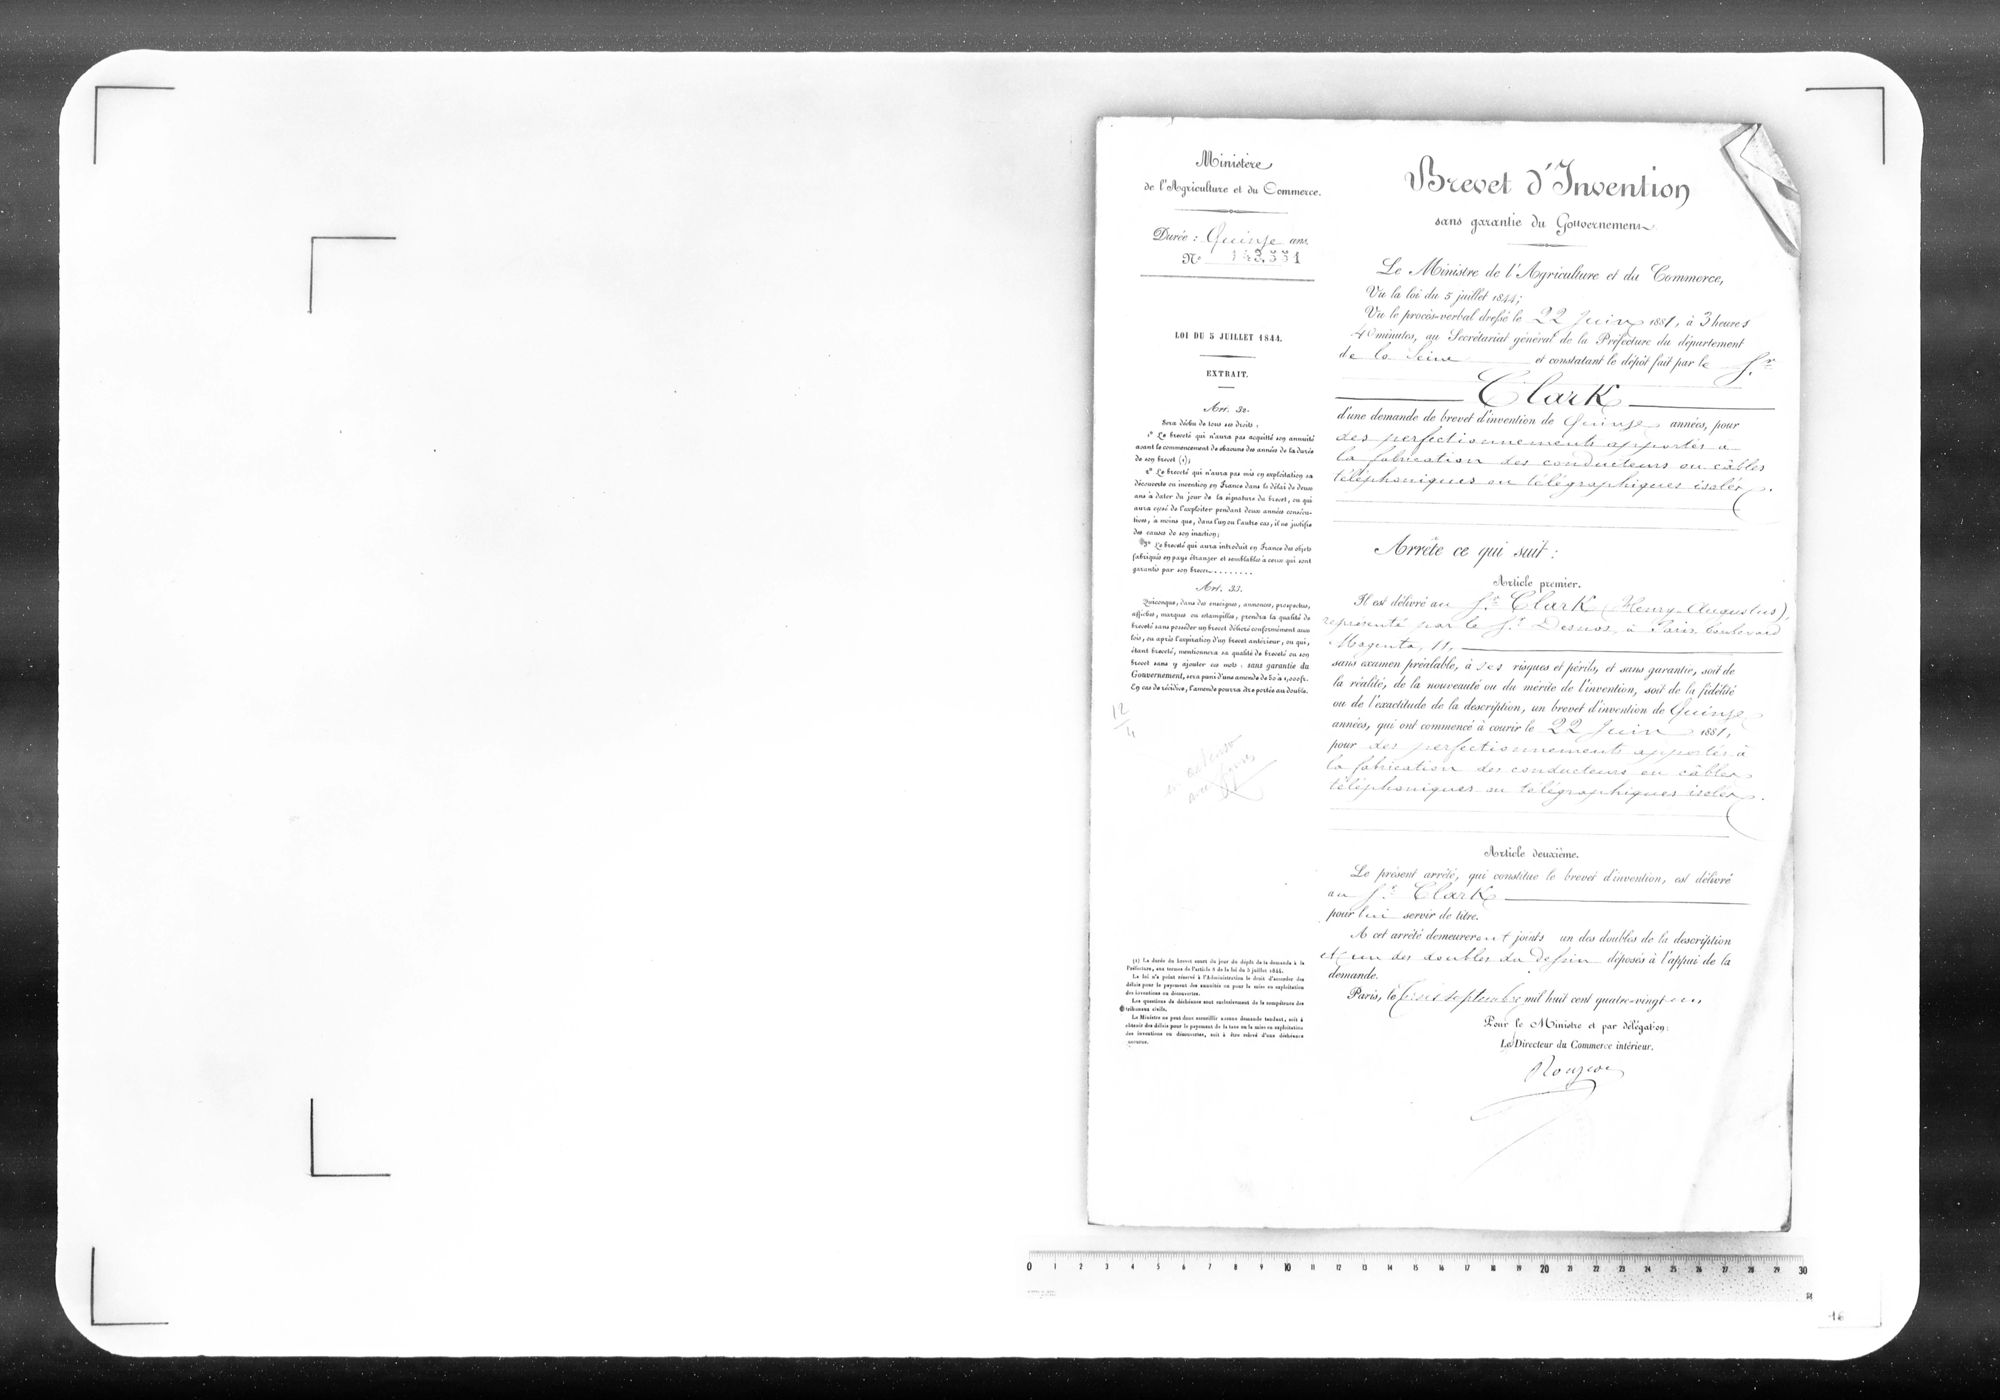 Ministère
de l'Agriculture et du Commerce.
Durée : Quinze ans
N° 143,551
LOI DU 5 JUILLET 1844.
EXTRAIT.
Art. 32.
Sera déchu de tous ses droits :
1° Le breveté qui n'aura pas acquitté son annuité
avant le commencement de chacune des années de la durée
de son brevet (1);
2° Le breveté qui n'aura pas mis en exploitation sa
découverte ou invention en France dans le délai de deux
ans à dater du jour de la signature du brevet, ou qui
aura cessé de l'exploiter pendant deux années consécu-
tives, à moins que, dans l'un ou l'autre cas, il ne justifie
des causes de son inaction;
3° Le breveté qui aura introduit en France des objets
fabriqués en pays étranger et semblables à ceux qui sont
garantis par son brevet.........
Art. 33.
Quiconque, dans des enseignes, annonces, prospectus,
affiches, marques ou estampilles, prendra la qualité de
breveté sans posséder un brevet délivré conformément aux
lois, ou après l'expiration d'un brevet antérieur, ou qui,
étant breveté, mentionnera sa qualité de breveté ou son
brevet sans y ajouter ces mots : sans garantie du
Gouvernement, sera puni d'une amende de 50 à 1,000 fr.
En cas de récidive, l'amende pourra être portée au double.
12
4
in extenso
avec figures
(1) La durée du brevet court du jour du dépôt de la demande à la
Préfecture, aux termes de l'article 8 de la loi du 5 juillet 1844.
La loi n'a point réservé à l'Administration le droit d'accorder des
délais pour le payement des annuités ou pour la mise en exploitation
des inventions ou découvertes.
Les questions de déchéance sont exclusivement de la compétence des
tribunaux civils.
Le Ministre ne peut donc accueillir aucune demande tendant, soit à
obtenir des délais pour le payement de la taxe ou la mise en exploitation
des inventions ou découvertes, soit à être relevé d'une déchéance
encourue.
Brevet d'Invention
sans garantie du Gouvernement
Le Ministre de l'Agriculture et du Commerce,
Vu la loi du 5 juillet 1844;
Vu le procès-verbal dressé le 22 Juin 1881, à 3 heures
40 minutes, au Secrétariat général de la Préfecture du département
de la Seine et constatant le dépôt fait par le Sr
Clark
d'une demande de brevet d'invention de Quinze années, pour
des perfectionnements apportés à
la fabrication des conducteurs ou câbles
téléphoniques ou télégraphiques isolés.
Arrête ce qui suit :
Article premier.
Il est délivré au Sr Clark (Henry-Augustus),
représenté par le Sr Desnos, à Paris, boulevard
Magenta, 11,
sans examen préalable, à ses risques et périls, et sans garantie, soit de
la réalité, de la nouveauté ou du mérite de l'invention, soit de la fidélité
ou de l'exactitude de la description, un brevet d'invention de Quinze
années, qui ont commencé à courir le 22 Juin 1881,
pour des perfectionnements apportés à
la fabrication des conducteurs ou câbles
téléphoniques ou télégraphiques isolés.
Article deuxième.
Le présent arrêté, qui constitue le brevet d'invention, est délivré
au Sr Clark
pour lui servir de titre.
A cet arrêté demeureront joints un des doubles de la description
et un des doubles du dessin déposés à l'appui de la
demande.
Paris, le septembre mil huit cent quatre-vingt un
Pour le Ministre et par délégation :
Le Directeur du Commerce intérieur.
0 1 2 3 4 5 6 7 8 9 10 11 12 13 14 15 16 17 18 19 20 21 22 23 24 25 26 27 28 29 30
16